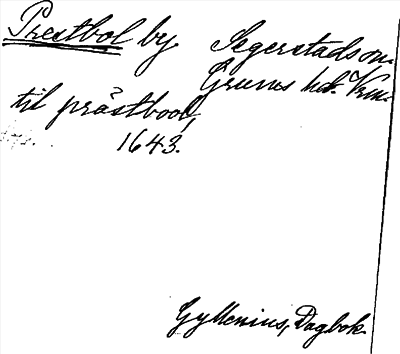 Prestbol by Segerstads sn.
Grums hd. Vrm.
til prästbool,
1643.
Gyllenius, Dagbok